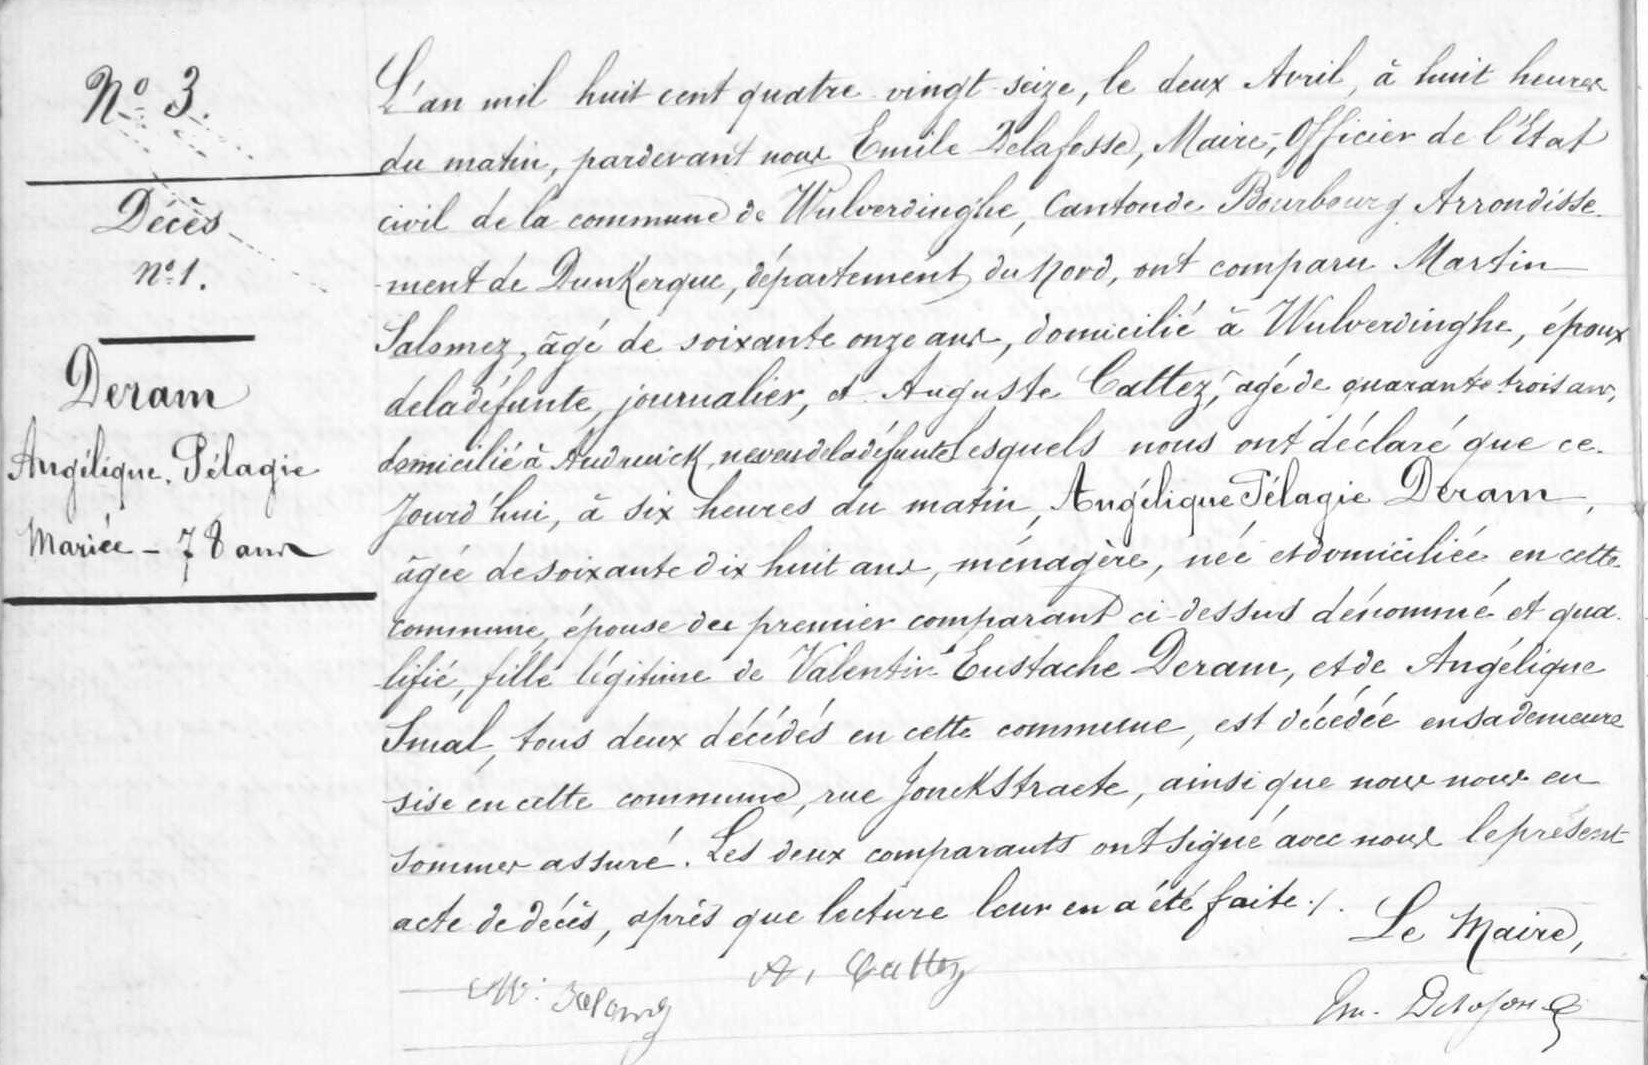 N° 3.
Décès
n° 1.
Deram
Angélique Pélagie
Mariée - 78 ans
L'an mil huit cent quatre vingt seize, le deux Avril, à huit heures
du matin, pardevant nous Emile Delafosse, Maire, Officier de l'Etat
civil de la commune de Wulverdinghe, Canton de Bourbourg Arrondisse-
ment de Dunkerque, département du Nord, ont comparu Martin
Salomez, âgé de soixante onze ans, domicilié à Wulverdinghe, époux
de la défunte, journalier, et Auguste Cattez, âgé de quarante trois ans,
domicilié à Audruick, neveu de la défunte lesquels nous ont déclaré que ce-
jourd'hui, à six heures du matin, Angélique Pélagie Deram,
âgée de soixante dix huit ans, ménagère, née et domiciliée en cette
commune, épouse du premier comparant ci-dessus dénommé et qua-
lifié, fille légitime de Valentin Eustache Deram, et de Angélique
Smal, tous deux décédés en cette commune, est décédée en sa demeure
sise en cette commune, rue Jonckstraete, ainsi que nous nous en
sommes assuré. Les deux comparants ont signé avec nous le présent
acte de décès, après que lecture leur en a été faite ./.
Le Maire,
A. Cattez
M. Salomez
Em. Delafosse